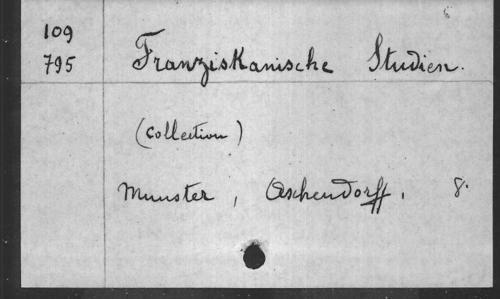 109
795 Franziskanische Studien.
(collection)
Munster, Aschendorff, 8.